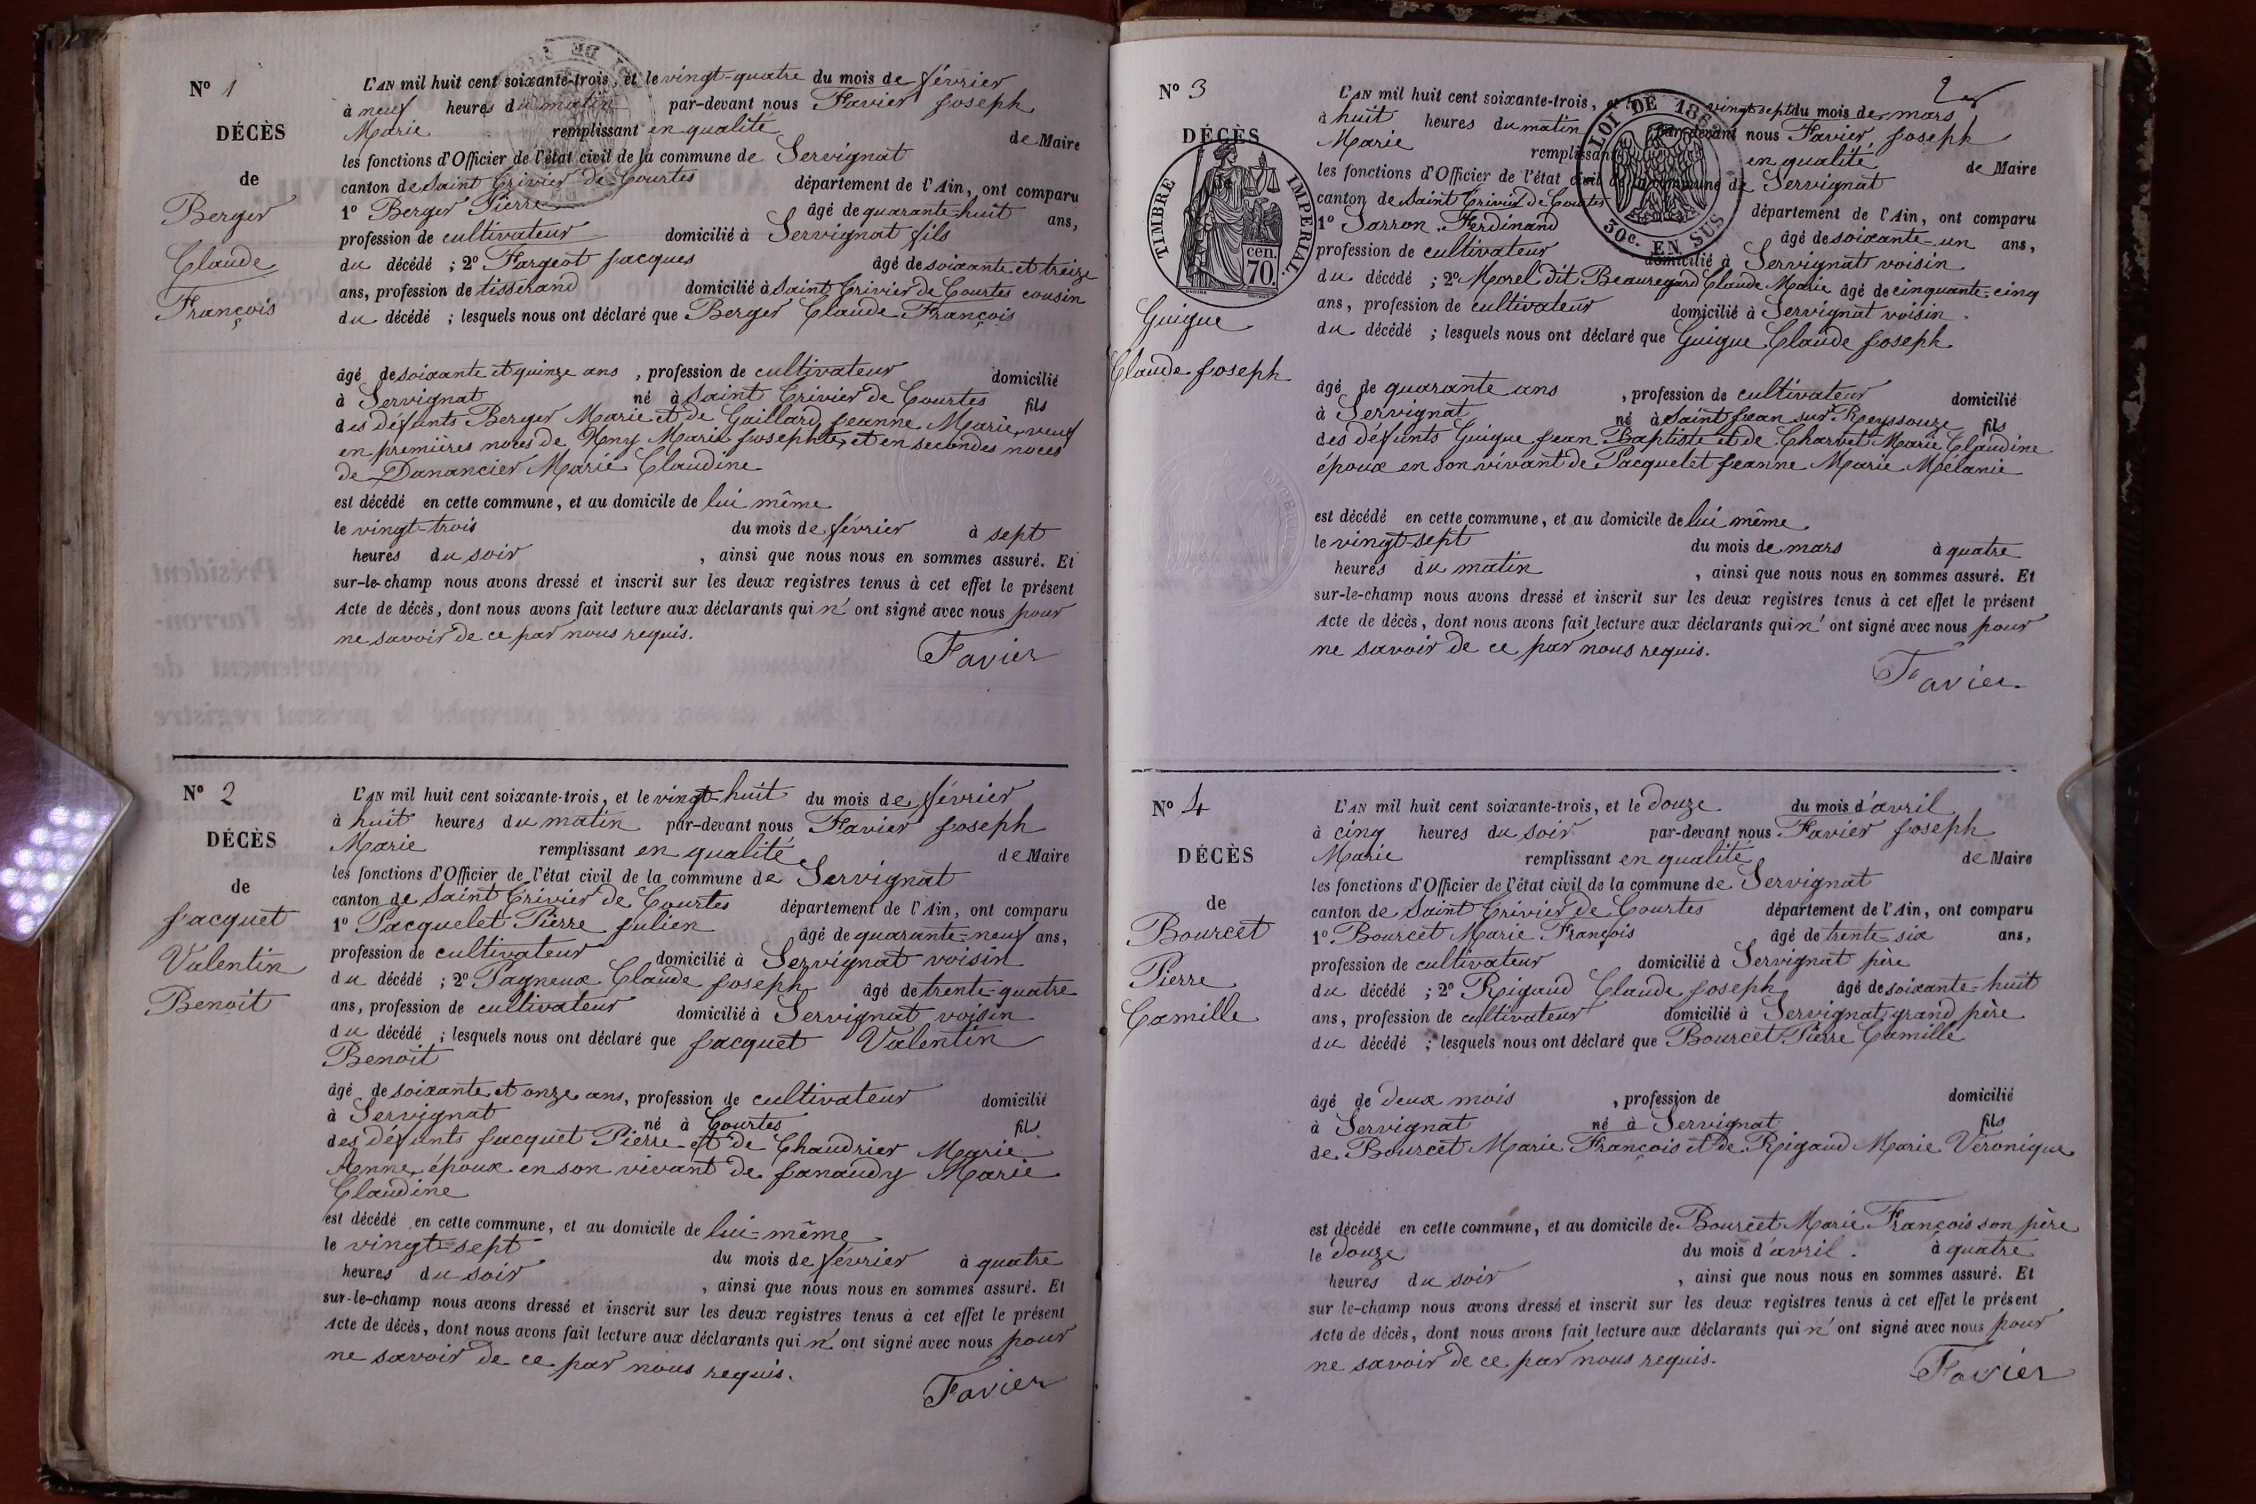 Nº 1
DÉCÈS
de
Berger
Claude
François
L'AN mil huit cent soixante-trois, et le vingt-quatre du mois de février
à neuf heures du matin par-devant nous Favier Joseph
Marie remplissant en qualité de Maire
les fonctions d'Officier de l'état civil de la commune de Servignat
canton de Saint Trivier de Courtes département de l'Ain, ont comparu
1º Berger Pierre âgé de quarante-huit ans,
profession de cultivateur domicilié à Servignat fils
du décédé ; 2º Fargeot Jacques âgé de soixante et treize
ans, profession de tisserand domicilié à Saint Trivier de Courtes cousin
du décédé ; lesquels nous ont déclaré que Berger Claude François
âgé de soixante et quinze ans, profession de cultivateur domicilié
à Servignat né à Saint Trivier de Courtes fils
des défunts Berger Marie et de Gaillard Jeanne Marie, veuf
en premières noces de Marie Josephte, et en secondes noces
de Danancier Marie Claudine
est décédé en cette commune, et au domicile de lui même
le vingt-trois du mois de février à sept
heures du soir, ainsi que nous nous en sommes assuré. Et
sur-le-champ nous avons dressé et inscrit sur les deux registres tenus à cet effet le présent
Acte de décès, dont nous avons fait lecture aux déclarants qui n'ont signé avec nous pour
ne savoir de ce par nous requis.
Favier
Nº 2
DÉCÈS
de
Jacquet
Valentin
Benoit
L'AN mil huit cent soixante-trois, et le vingt-huit du mois de février
à huit heures du matin par-devant nous Favier Joseph
Marie remplissant en qualité de Maire
les fonctions d'Officier de l'état civil de la commune de Servignat
canton de Saint Trivier de Courtes département de l'Ain, ont comparu
1º Pacquelet Pierre Julien âgé de quarante-neuf ans,
profession de cultivateur domicilié à Servignat voisin
du décédé ; 2º Pagneux Claude Joseph âgé de trente-quatre
ans, profession de cultivateur domicilié à Servignat voisin
du décédé ; lesquels nous ont déclaré que Jacquet Valentin
Benoit
âgé de soixante et onze ans, profession de cultivateur domicilié
à Servignat né à Courtes fils
des défunts Jacquet Pierre et de Chaudrier Marie
Anne, époux en son vivant de Janaudy Marie
Claudine
est décédé en cette commune, et au domicile de lui-même
le vingt-sept du mois de février à quatre
heures du soir, ainsi que nous nous en sommes assuré. Et
sur-le-champ nous avons dressé et inscrit sur les deux registres tenus à cet effet le présent
Acte de décès, dont nous avons fait lecture aux déclarants qui n'ont signé avec nous pour
ne savoir de ce par nous requis.
Favier
2
Nº 3
DÉCÈS
de
TIMBRE IMPERIAL.
cen.
70.
LOI DE 186
30c. EN SUS
Guigue
Claude Joseph
L'AN mil huit cent soixante-trois, et le vingt sept du mois de mars
à huit heures du matin par-devant nous Favier Joseph
Marie remplissant en qualité de Maire
les fonctions d'Officier de l'état civil de la commune de Servignat
canton de Saint Trivier de Courtes département de l'Ain, ont comparu
1º Sarron Ferdinand âgé de soixante-un ans,
profession de cultivateur domicilié à Servignat voisin
du décédé ; 2º Morel dit Beauregard Claude Marie âgé de cinquante-cinq
ans, profession de cultivateur domicilié à Servignat voisin
du décédé ; lesquels nous ont déclaré que Guigue Claude Joseph
âgé de quarante ans, profession de cultivateur domicilié
à Servignat né à Saint Jean sur Reyssouze fils
des défunts Guigue Jean Baptiste et de Charvet Marie Claudine
époux en son vivant de Pacquelet Jeanne Marie Mélanie
est décédé en cette commune, et au domicile de lui même
le vingt-sept du mois de mars à quatre
heures du matin, ainsi que nous nous en sommes assuré. Et
sur-le-champ nous avons dressé et inscrit sur les deux registres tenus à cet effet le présent
Acte de décès, dont nous avons fait lecture aux déclarants qui n'ont signé avec nous pour
ne savoir de ce par nous requis.
Favier.
Nº 4
DÉCÈS
de
Bourcet
Pierre
Camille
L'AN mil huit cent soixante-trois, et le douze du mois d'avril
à cinq heures du soir par-devant nous Favier Joseph
Marie remplissant en qualité de Maire
les fonctions d'Officier de l'état civil de la commune de Servignat
canton de Saint Trivier de Courtes département de l'Ain, ont comparu
1º Bourcet Marie François âgé de trente-six ans,
profession de cultivateur domicilié à Servignat père
du décédé ; 2º Rigaud Claude Joseph âgé de soixante-huit
ans, profession de cultivateur domicilié à Servignat grand père
du décédé ; lesquels nous ont déclaré que Bourcet Pierre Camille
âgé de deux mois, profession de domicilié
à Servignat né à Servignat fils
de Bourcet Marie François et de Rigaud Marie Véronique
est décédé en cette commune, et au domicile de Bourcet Marie François son père
le douze du mois d'avril. à quatre
heures du soir, ainsi que nous nous en sommes assuré. Et
sur le-champ nous avons dressé et inscrit sur les deux registres tenus à cet effet le présent
Acte de décès, dont nous avons fait lecture aux déclarants qui n'ont signé avec nous pour
ne savoir de ce par nous requis.
Favier